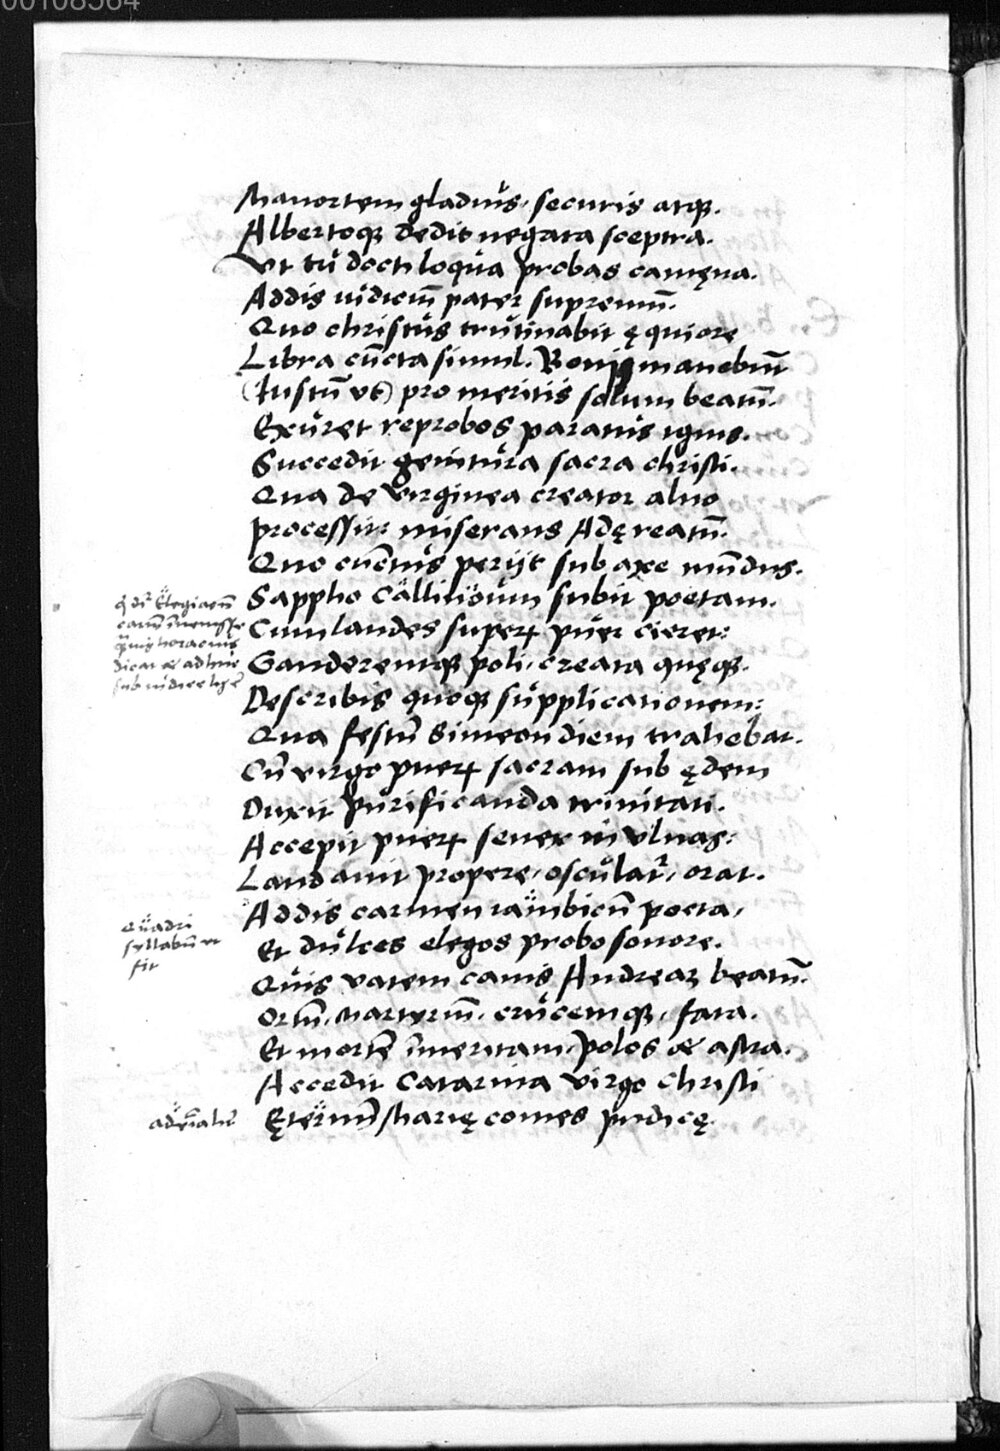 00108564
Mauortem gladius, securis atqꝫ.
Albertoqꝫ dedit negata sceptra.
Vt tu docti loqua probas camęna.
Addis iudiciū pater supremū.
Quo christus trutinabit ęquiore
Libra cūcta simul. Bonis manebūt
(Iustū vt) pro meritis solum beatū.
Exuret reprobos paratus ignis.
Succedit genitura sacra christi.
Qua de virginea creator aluo
processit: miserans Adę reatū.
Quo cūctus perijt sub axe mūdus.
Sappho Callinoum subit poetam.
Cum laudes superꝝ puer cieret:
Gauderemqꝫ poli, creata quęqꝫ.
Describis quoqꝫ supplicationem:
Qua festū Simeon diem trahebat.
Cū virgo puerꝝ sacram sub ędem
Duxit purificanda trinitati.
Accepit puerꝝ senex in vlnas:
Laudauit propere, osculat᷑, orat.
Addis carmen iambicū poeta,
Et dulces elegos probo sonore.
Quis vatem canis Andreaꝫ beatū.
Ortū, Martyriū, crucemqꝫ, fata.
Et mortē īmeritam, polos & astra.
Accedit Catarina virgo christi
Ęternū Marię comes pudicę.
Elegiacū
horatius
dicat & adhuc
sub iudice
Quadri
syllabū vt
fit